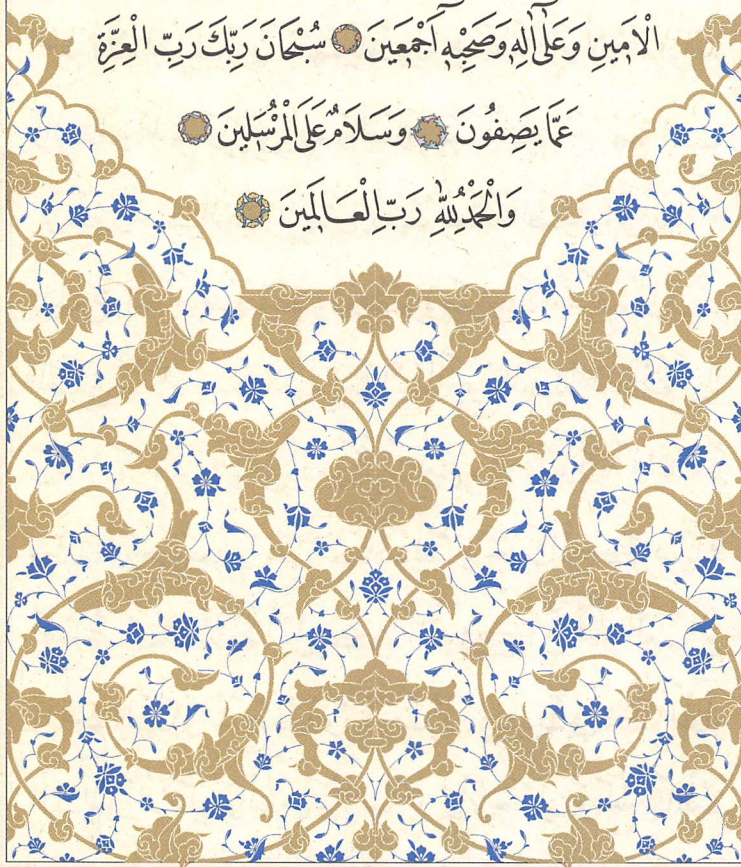 الْاَمِينِ وَعَلٰٓى اٰلِه۪ وَصَحْبِه۪ٓ اَجْمَع۪ينَ سُبْحَانَ رَبِّكَ رَبِّ الْعِزَّةِ
عَمَّا يَصِفُونَ وَسَلَامٌ عَلَى الْمُرْسَل۪ينَ
وَالْحَمْدُ لِلّٰهِ رَبِّ الْعَالَم۪ينَ